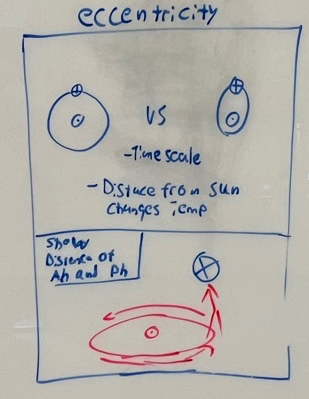 eccentricity
VS
-Time scale
- Distace from sun
changes Temp
Show
Distence of
Ah and Ph